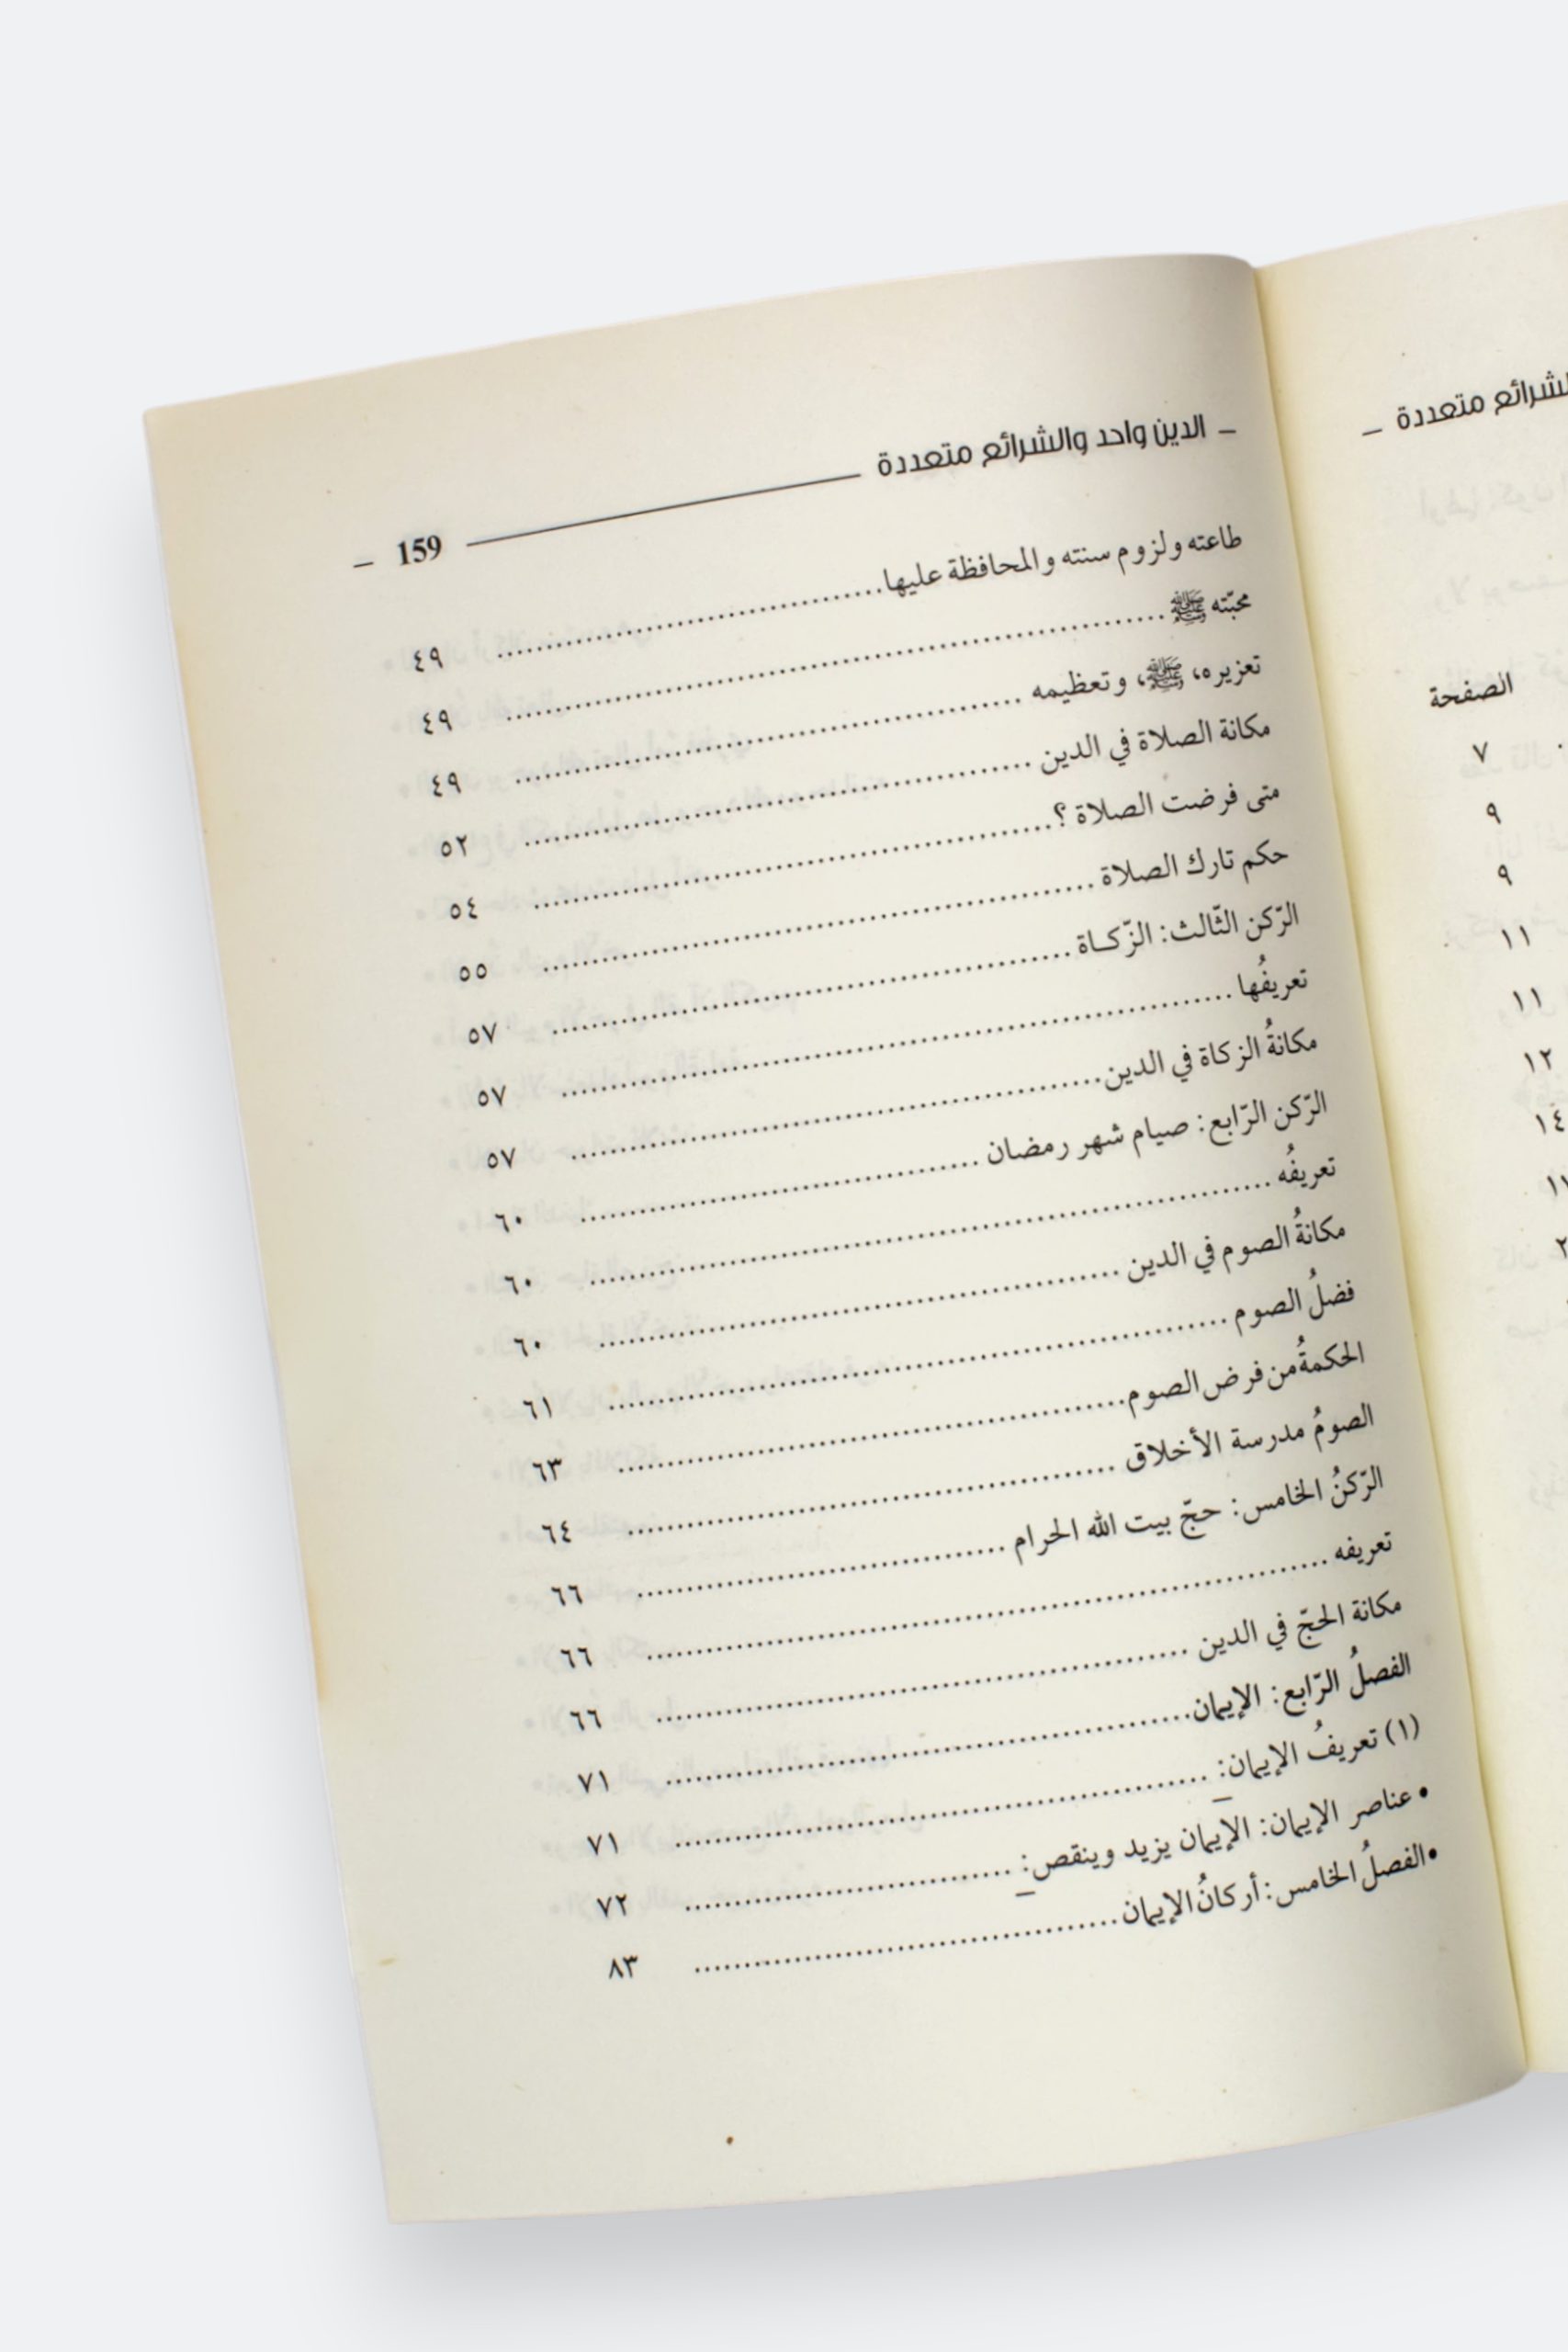 الشرائع متعددة –
الصفحة
٧
٩
٩
١١
١١
١٢
١٤
– الدين واحد والشرائع متعددة 159 –
طاعته ولزوم سنته والمحافظة عليها ٤٩
محبّته ﷺ ٤٩
تعزيره، ﷺ، وتعظيمه ٤٩
مكانة الصلاة في الدين ٥٢
متى فرضت الصلاة ؟ ٥٤
حكم تارك الصلاة ٥٥
الرّكن الثّالث: الزّكـاة ٥٧
تعريفُها ٥٧
مكانةُ الزكاة في الدين ٥٧
الرّكن الرّابع: صيام شهر رمضان ٦٠
تعريفُه ٦٠
مكانةُ الصوم في الدين ٦٠
فضلُ الصوم ٦١
الحكمةُ من فرض الصوم ٦٣
الصومُ مدرسة الأخلاق ٦٤
الرّكنُ الخامس: حجّ بيت الله الحرام ٦٦
تعريفه ٦٦
مكانة الحجّ في الدين ٦٦
الفصلُ الرّابع: الإيمان ٧١
(١) تعريفُ الإيمان: ٧١
• عناصر الإيمان: الإيمان يزيد وينقص: ٧٢
• الفصلُ الخامس: أركانُ الإيمان ٨٣